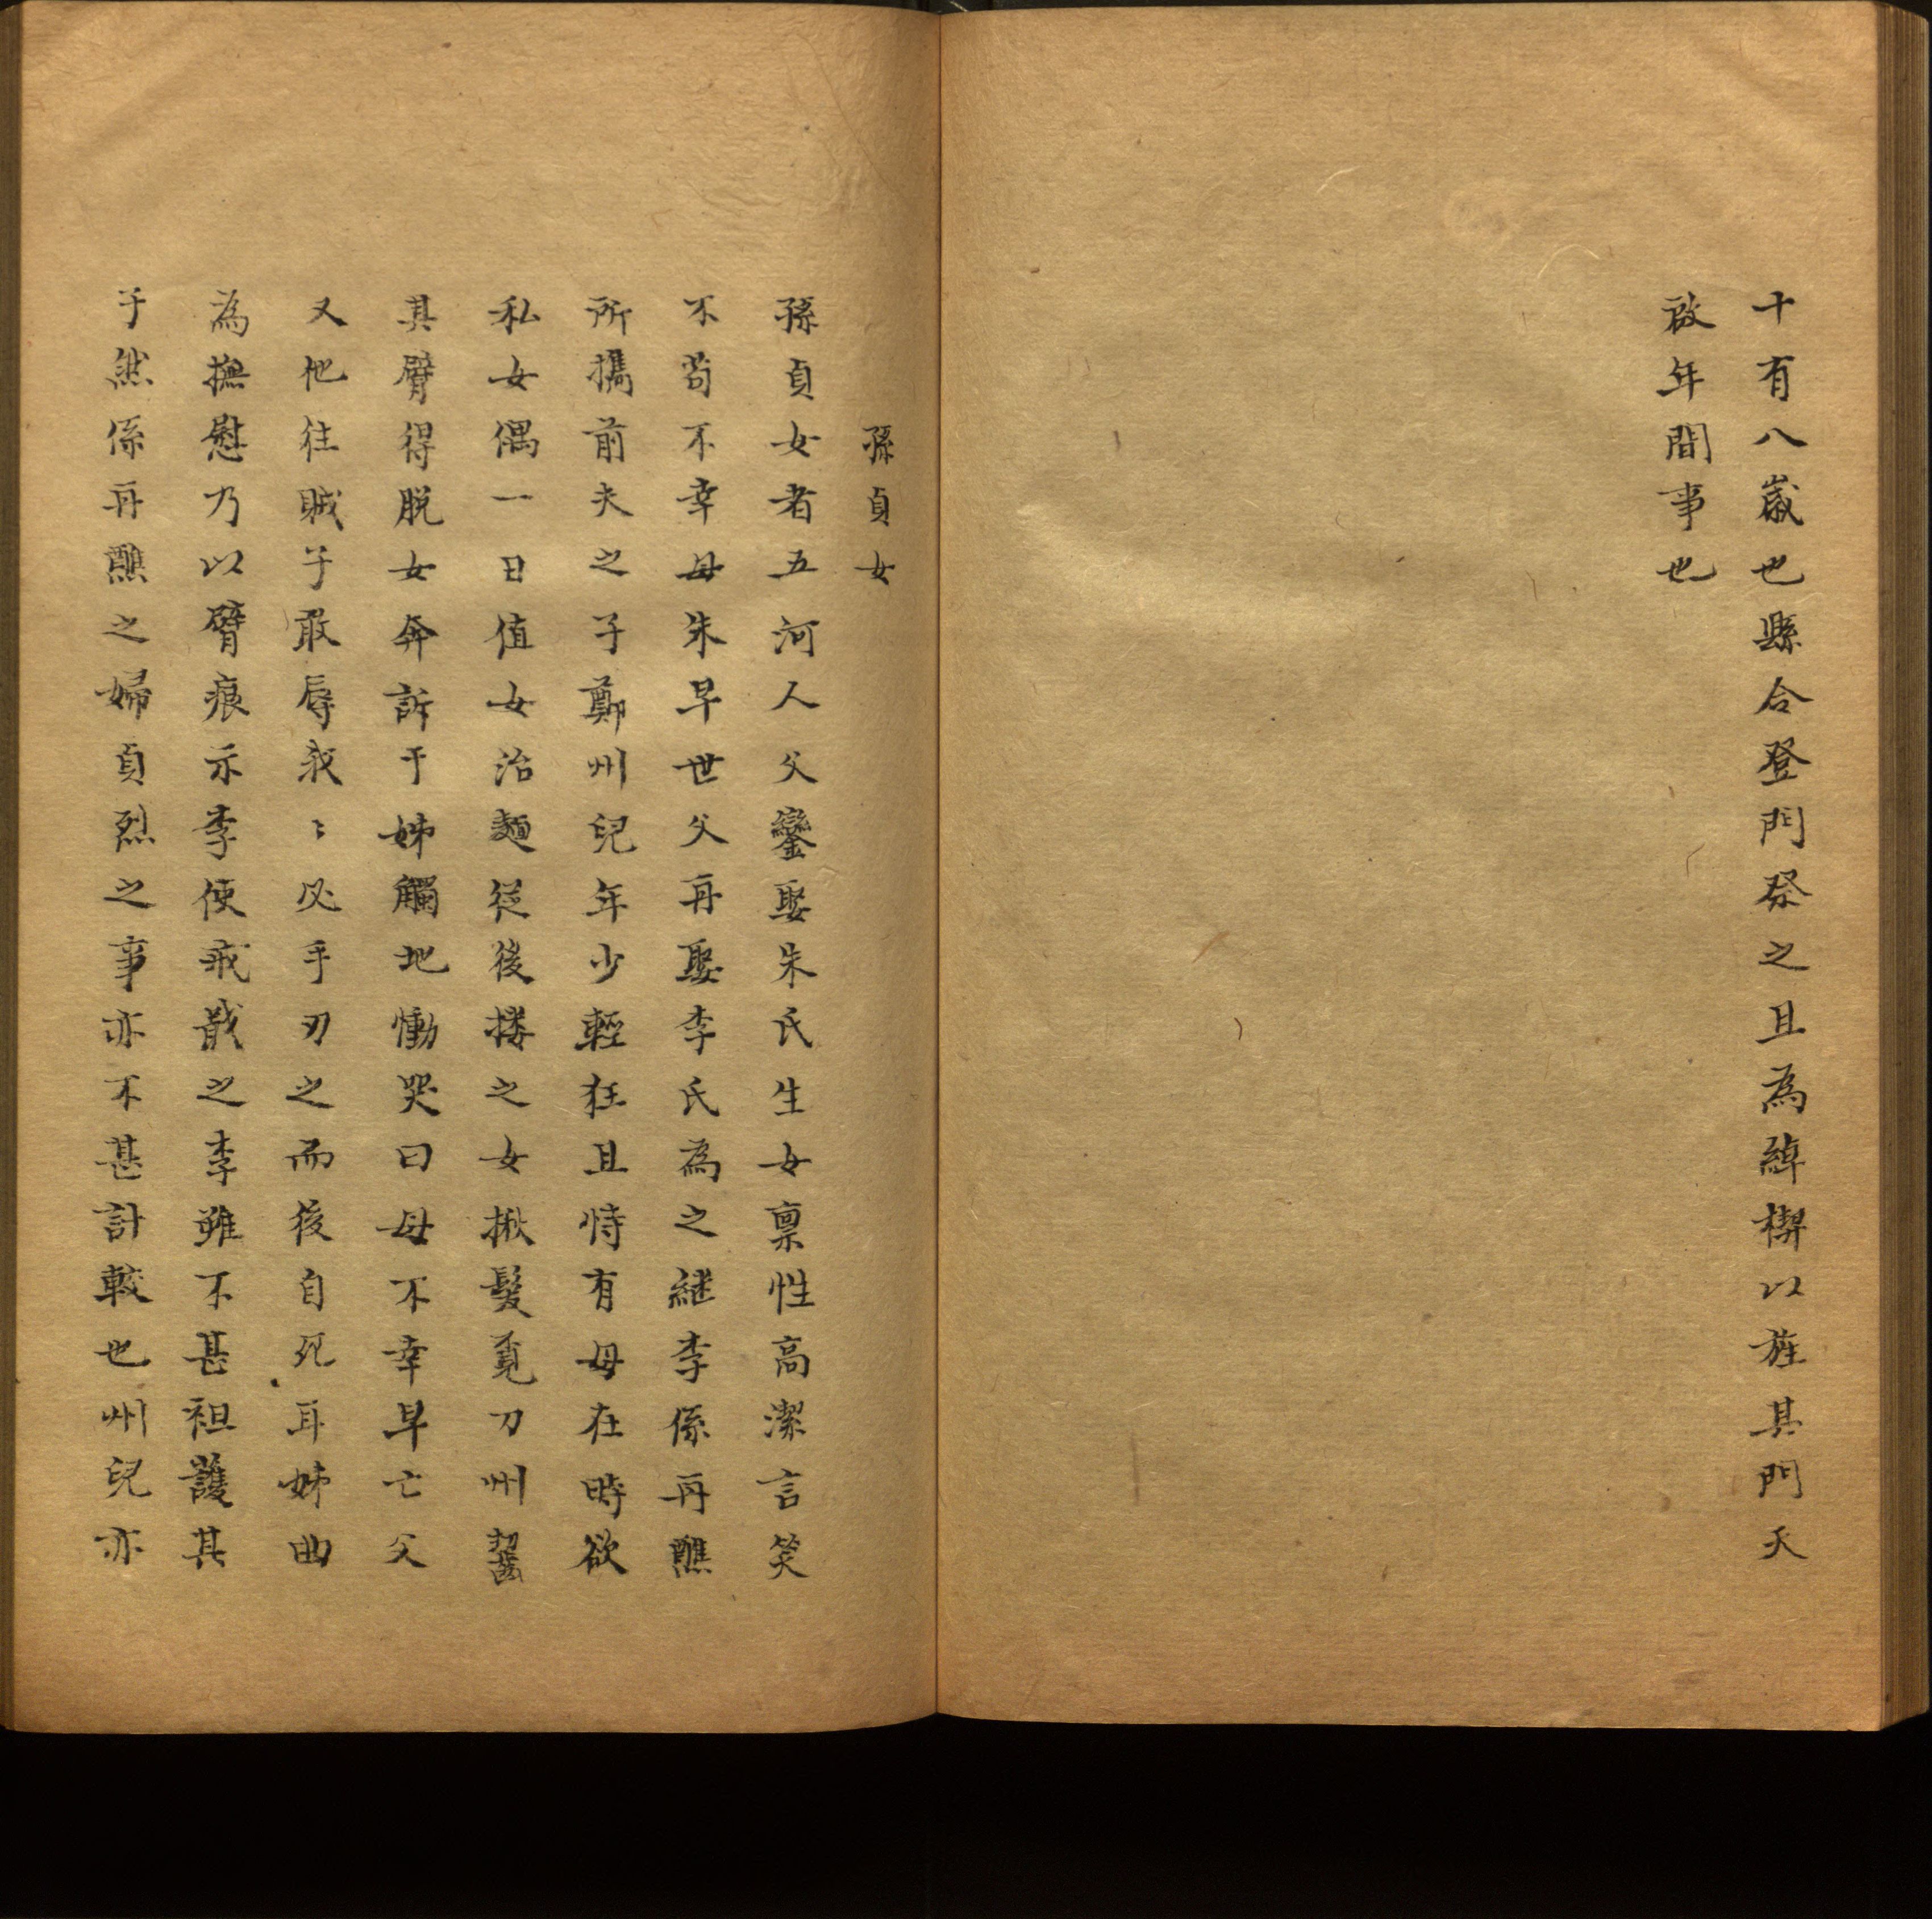 十有八歲也縣令登門祭之且為綽楔以旌其門天
啟年間事也
孫貞女
孫貞女者五河人父鑾娶朱氏生女禀性高潔言笑
不苟不幸母朱早世父再娶李氏為之継李係再醮
所攜前夫之子鄭州兒年少輕狂且恃有母在時欲
私女偶一日值女治麵從後摟之女揪髮覓刀州齧
其臂得脱女奔訴于姊觸地慟哭曰母不幸早亡父
又他往賊子敢辱我〻必手刃之而後自死耳姊曲
為撫慰乃以臂痕示李使戒戢之李雖不甚袒護其
子然係再醮之婦貞烈之事亦不甚計較也州兒亦